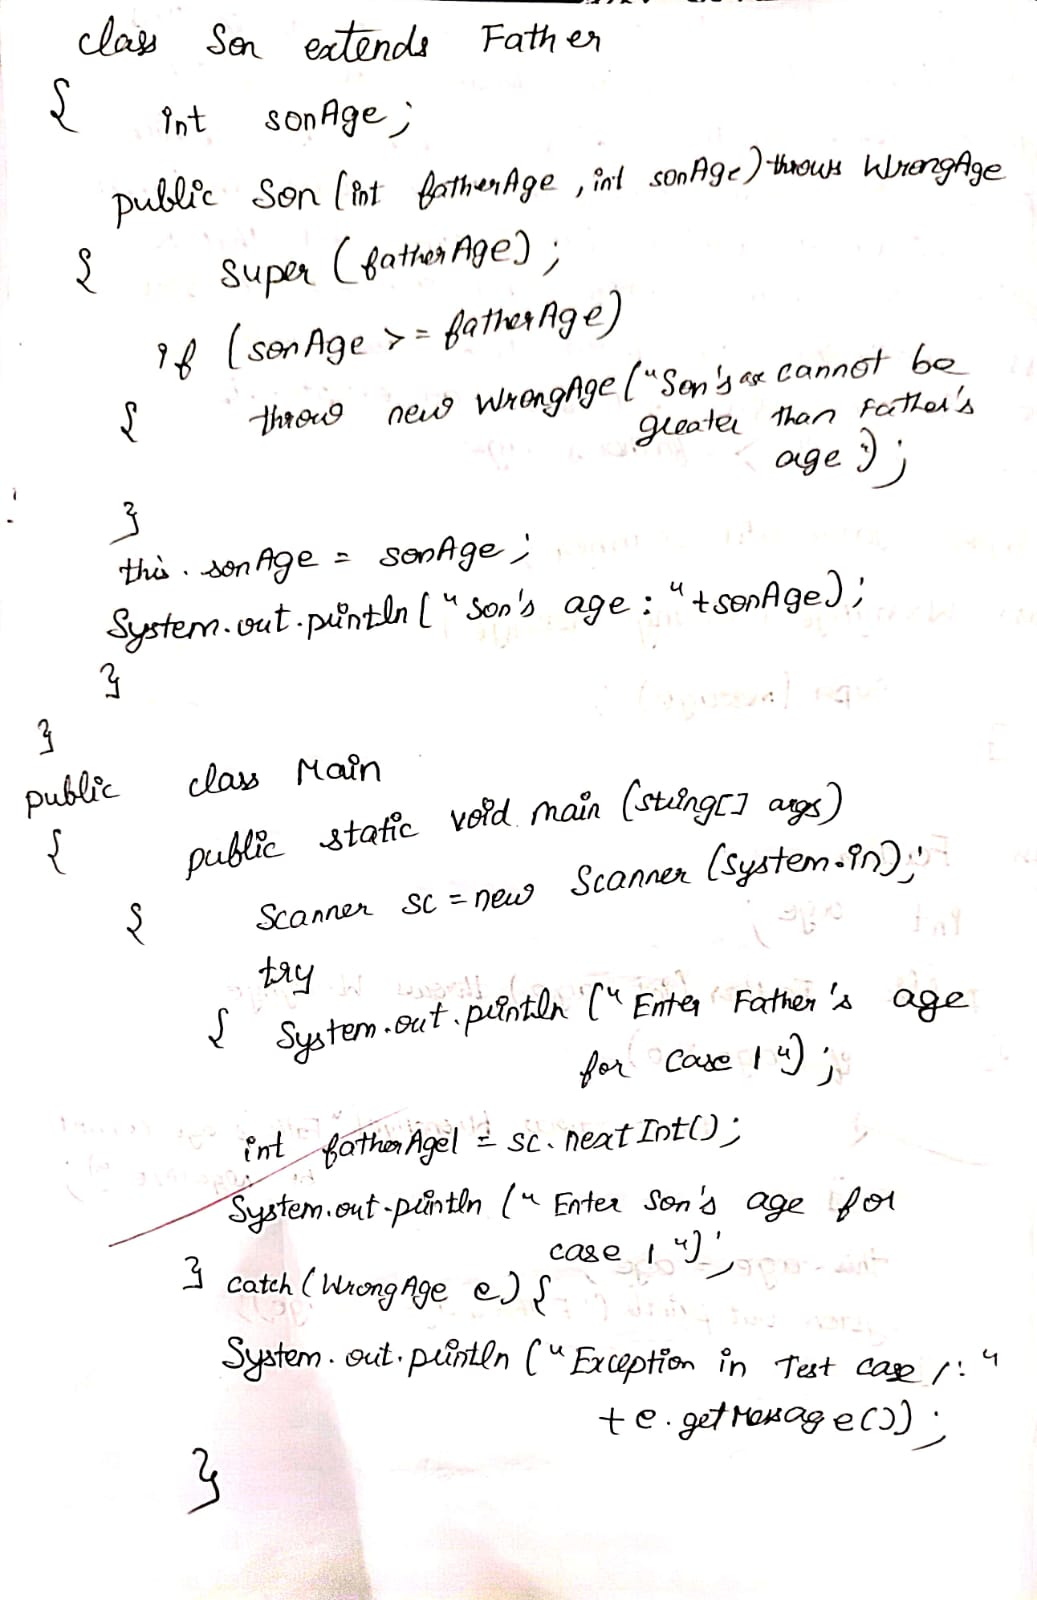 class Son extends Father
{ int sonAge;
public Son (int fatherAge, int sonAge) throws WrongAge
{ super (fatherAge);
if (sonAge >= fatherAge)
{ throw new WrongAge ("Son's cannot be
greater than Father's
age");
}
this.sonAge = sonAge;
System.out.println ("Son's age: "+sonAge);
}
}
public class Main
{ public static void main (String[] args)
{ Scanner sc = new Scanner (System.in);
try
{ System.out.println ("Enter Father's age
for case 1");
int fatherAge1 = sc.nextInt();
System.out.println ("Enter Son's age for
case 1");
} catch (WrongAge e) {
System.out.println ("Exception in Test case 1:"
+ e.getMessage());
}